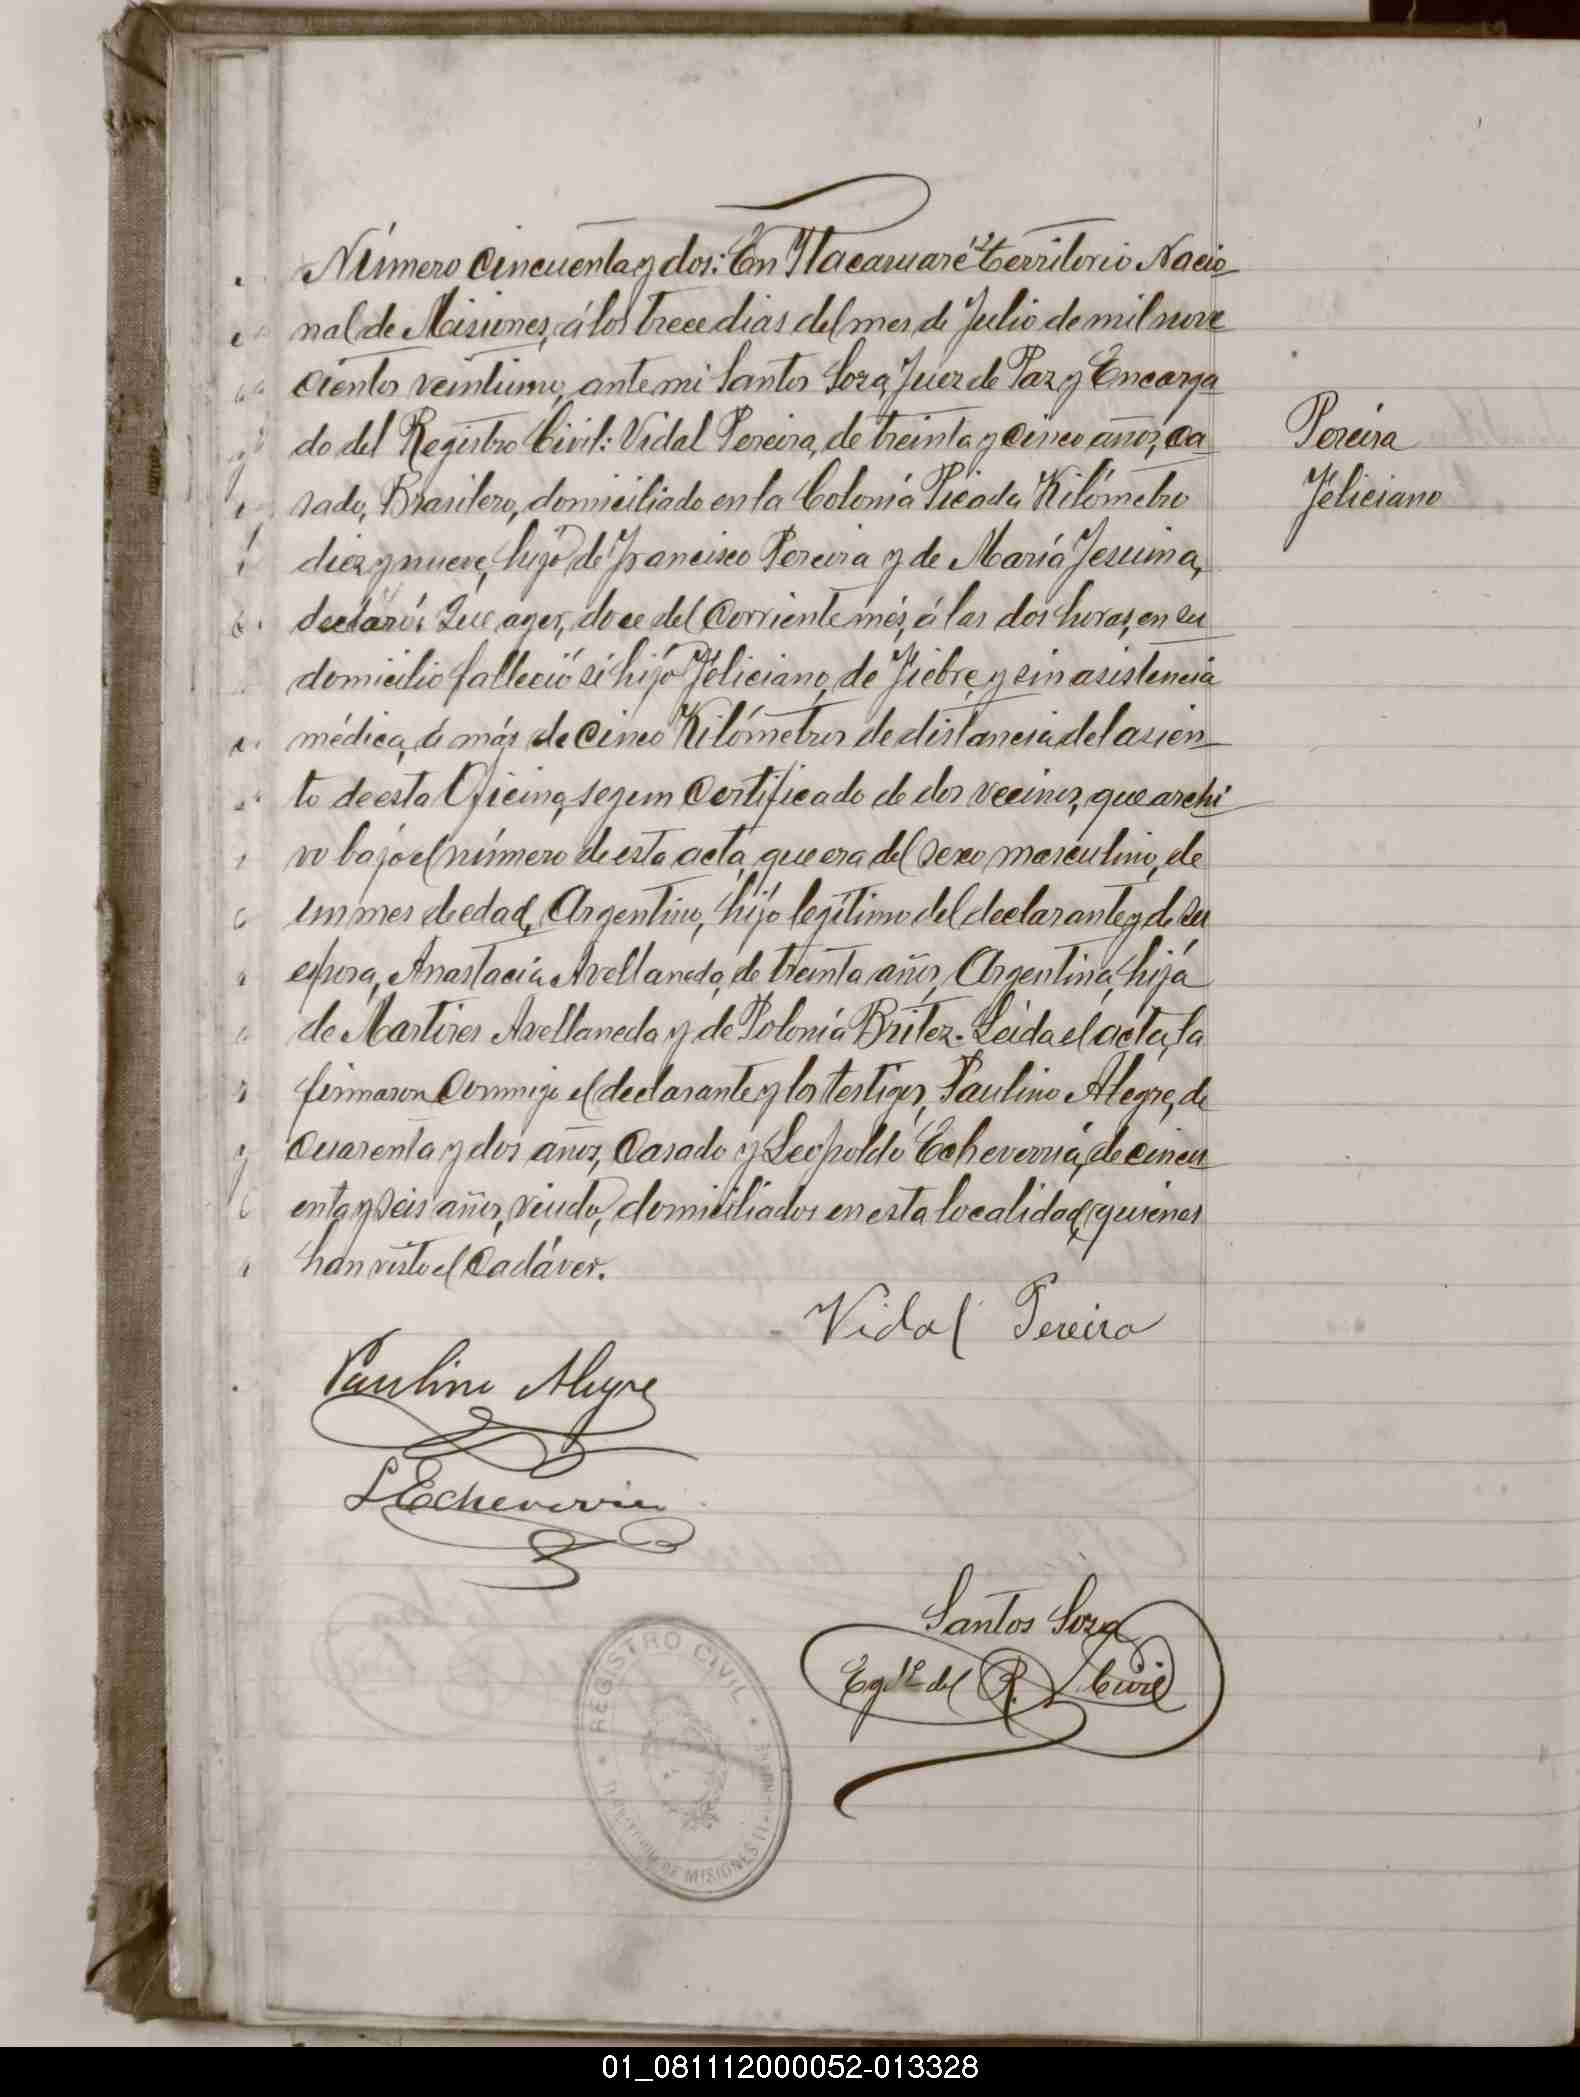 Número cincuenta y dos: En Ytacaruaré, territorio Nacio-
nal de Misiones, á los trece dias del mes de Julio de mil nove
cientos veintiuno, ante mi Santos Soza, Juez de Paz y Encarga-
do del Registro Civil: Vidal Pereira, de treinta y cinco años, ca-
sado, Brasilero, domiciliado en la Colonia Picada Kilómetro
diez y nueve, hijo de Francisco Pereira y de María Jesuina,
declaró: Que ayer, doce del corriente més, á las dos horas, en su
domicilio falleció si hijo Feliciano, de Fiebre, y sin asistencia
médica, á más de cinco Kilómetros de distancia del asien-
to de esta Oficina, segun certificado de dos vecinos, que archi-
vo bajo el número de esta acta, que era del sexo masculino, de
un mes de edad, Argentino, hijo legítimo del declarante y de su
esposa, Anastacia Avellaneda, de treinta años, Argentina, hija
de Martires Avellaneda y de Polonia Britez. Leida el acta, la
firmaron conmigo el declarante y los testigos, Paulino Alegre, de
cuarenta y dos años, casado y Leopoldo Echeverria, de cincu-
enta y seis años, viudo, domiciliados en esta localidad, quienes
han visto el cadáver.
Pereira
Feliciano
Vidal Pereira
Paulino Alegre
L Echeverria
Santos Soza
Eg.do del R. Civil
REGISTRO CIVIL
DE MISIONES
01_081112000052-013328